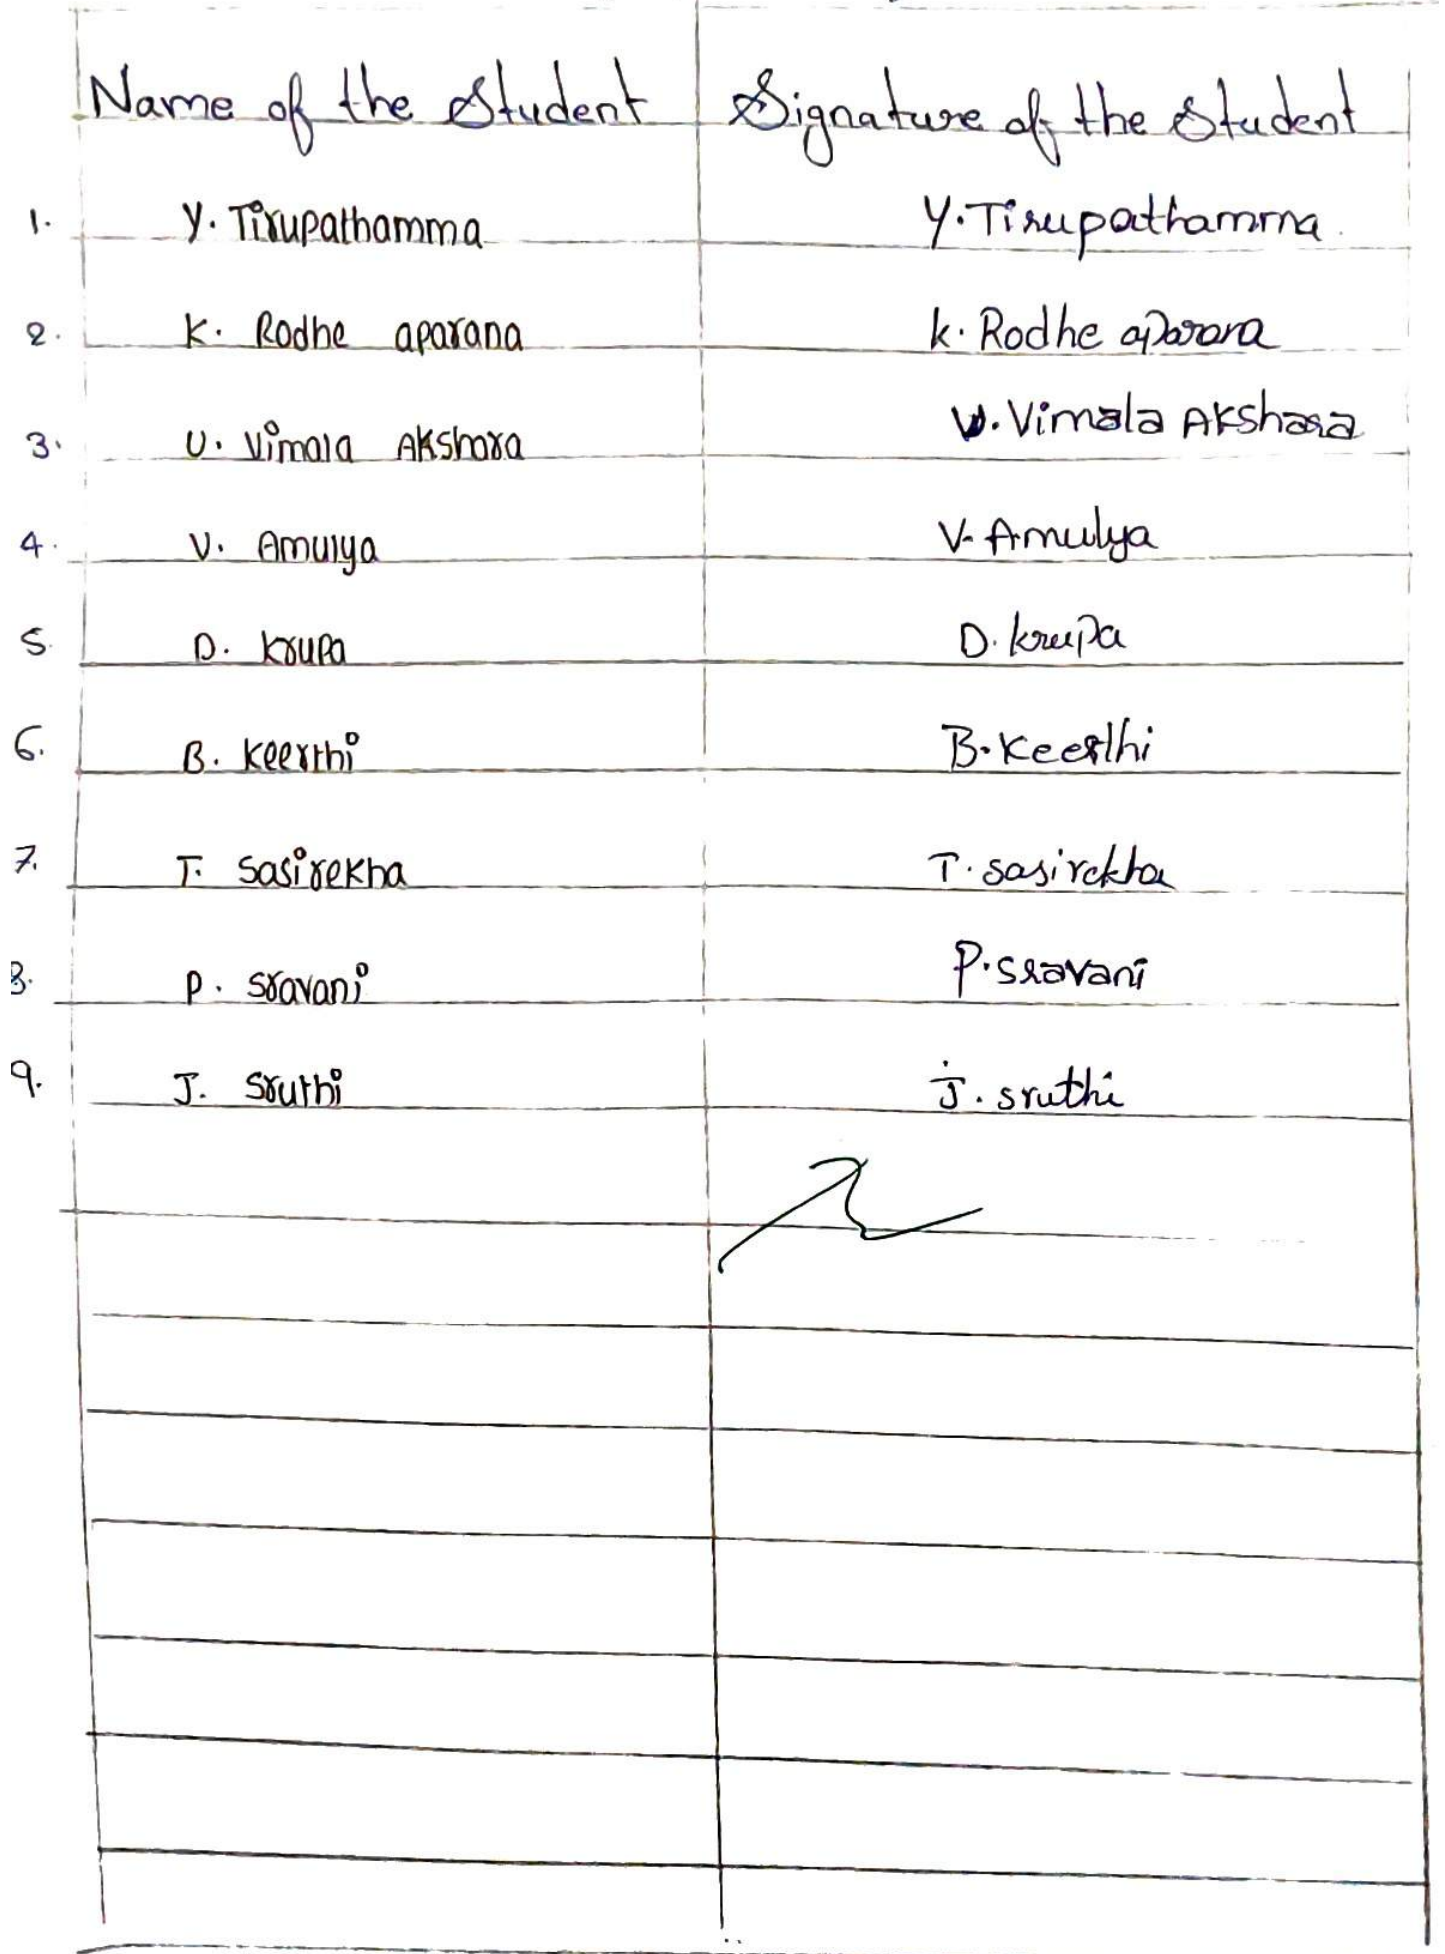 Name of the Student Signature of the Student
1. Y. Tirupathamma Y. Tirupathamma
2. K. Rodhe aparana k. Rodhe aparana
3. U. Vimala Akshara U. Vimala Akshara
4. V. Amulya V. Amulya
5. D. Krupa D. krupa
6. B. Keerthi B. Keerthi
7. T. Sasirekha T. sasirekha
8. P. Sravani P. sravani
9. J. Sruthi J. sruthi